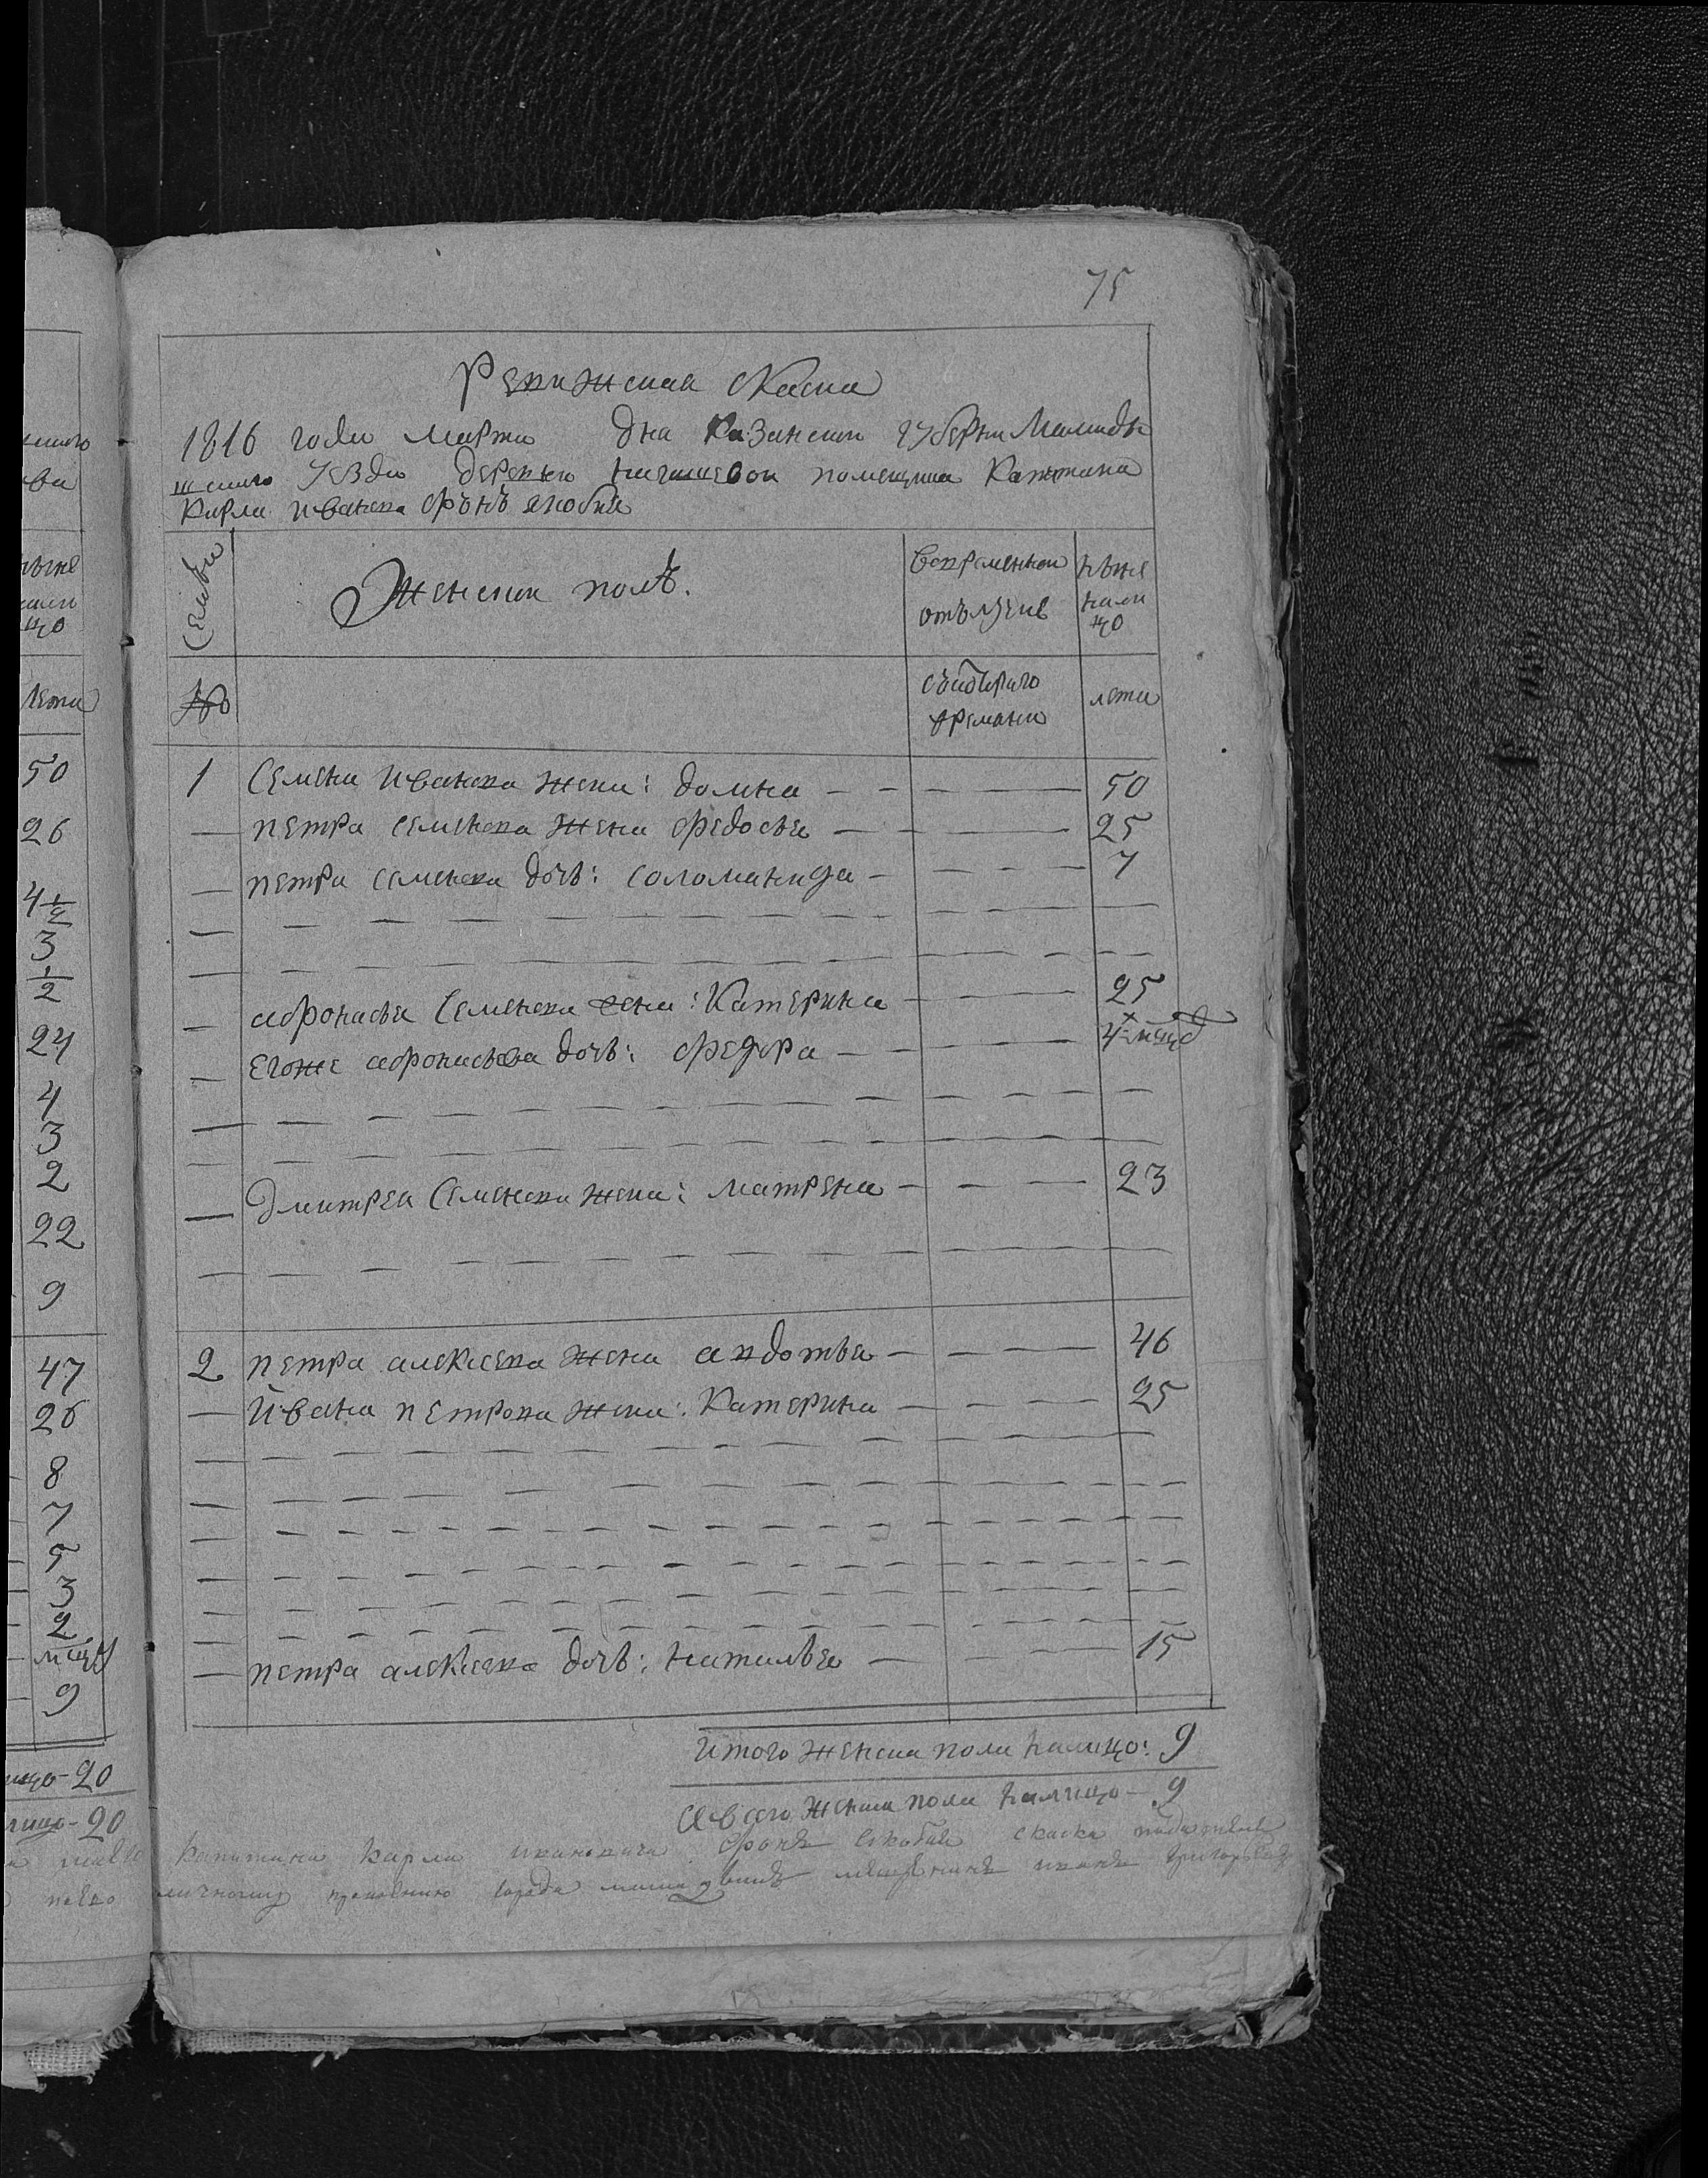 75
Ревижская скаска
1816 года марта дня Казанскои губерни Мамады
шскаго уезда деревни нагашевои помещика Капитана
Карла иванова фонъ якобия
Семьи
Женскои полъ.
вовременнои
отълучке
ныне
нали
цо
№
съкоторого
времани
лета
1 Семена иванова жена: домна 50
петра семенова жена федосья 25
петра семенова дочь: соломанида 7
афонасья Семенова жена: Катерина 25
Егоже афонасьева дочь: федора 4 месец
Дмитрея Семенова жена: матрена 23
2 петра алексеева жена авдотья 46
ивана петрова жена: Катерина 25
петра алексеева дочь: наталья 15
итого женска пола налицо: 9
Авсего женска пола налицо 9
Капитана Карла ивановича фонъ якобия скаска
личному прошению города мещенинъ иванъ григорьевъ
50
26
4 1/2
3
1/2
24
4
3
2
22
9
47
26
8
7
5
3
2
9
20
20